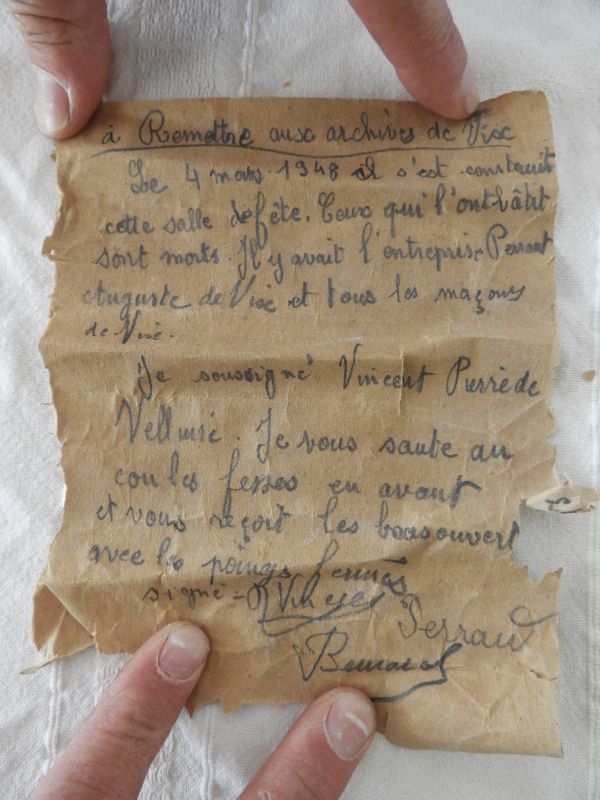 à Remettre aux archives de Vix
Le 4 mars 1948 il s'est construit
cette salle defête. Ceux qui l'ont bâtit
sont morts. Il y avait l'entreprise Perraut
Auguste de Vix et tous les maçons
de Vix.
Je soussigné Vincent Pierre de
Velluire. Je vous saute au
cou les fesses en avant
et vous reçoit les bras ouvert
avec les poings fermés
signé - Vincent
Perraud
Bernard